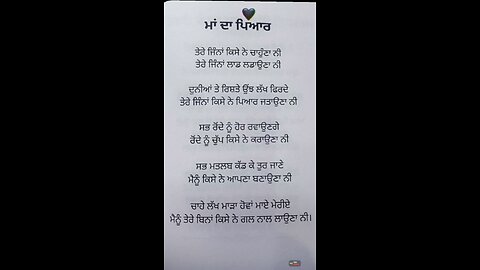 ਮਾਂ ਦਾ ਪਿਆਰ
ਤੇਰੇ ਜਿੰਨਾਂ ਕਿਸੇ ਨੇ ਚਾਹੁੰਣਾ ਨੀ
ਤੇਰੇ ਜਿੰਨਾਂ ਲਾਡ ਲਡਾਉਣਾ ਨੀ
ਦੁਨੀਆਂ ਤੇ ਰਿਸ਼ਤੇ ਉਂਝ ਲੱਖ ਫਿਰਦੇ
ਤੇਰੇ ਜਿੰਨਾਂ ਕਿਸੇ ਨੇ ਪਿਆਰ ਜਤਾਉਣਾ ਨੀ
ਸਭ ਰੋਂਦੇ ਨੂੰ ਹੋਰ ਰਵਾਉਣਗੇ
ਰੋਂਦੇ ਨੂੰ ਚੁੱਪ ਕਿਸੇ ਨੇ ਕਰਾਉਣਾ ਨੀ
ਸਭ ਮਤਲਬ ਕੱਡ ਕੇ ਤੁਰ ਜਾਣੇ
ਮੈਨੂੰ ਕਿਸੇ ਨੇ ਆਪਣਾ ਬਣਾਉਣਾ ਨੀ
ਚਾਹੇ ਲੱਖ ਮਾੜਾ ਹੋਵਾਂ ਮਾਏ ਮੇਰੀਏ
ਮੈਨੂੰ ਤੇਰੇ ਬਿਨਾਂ ਕਿਸੇ ਨੇ ਗਲ ਨਾਲ ਲਾਉਣਾ ਨੀ।